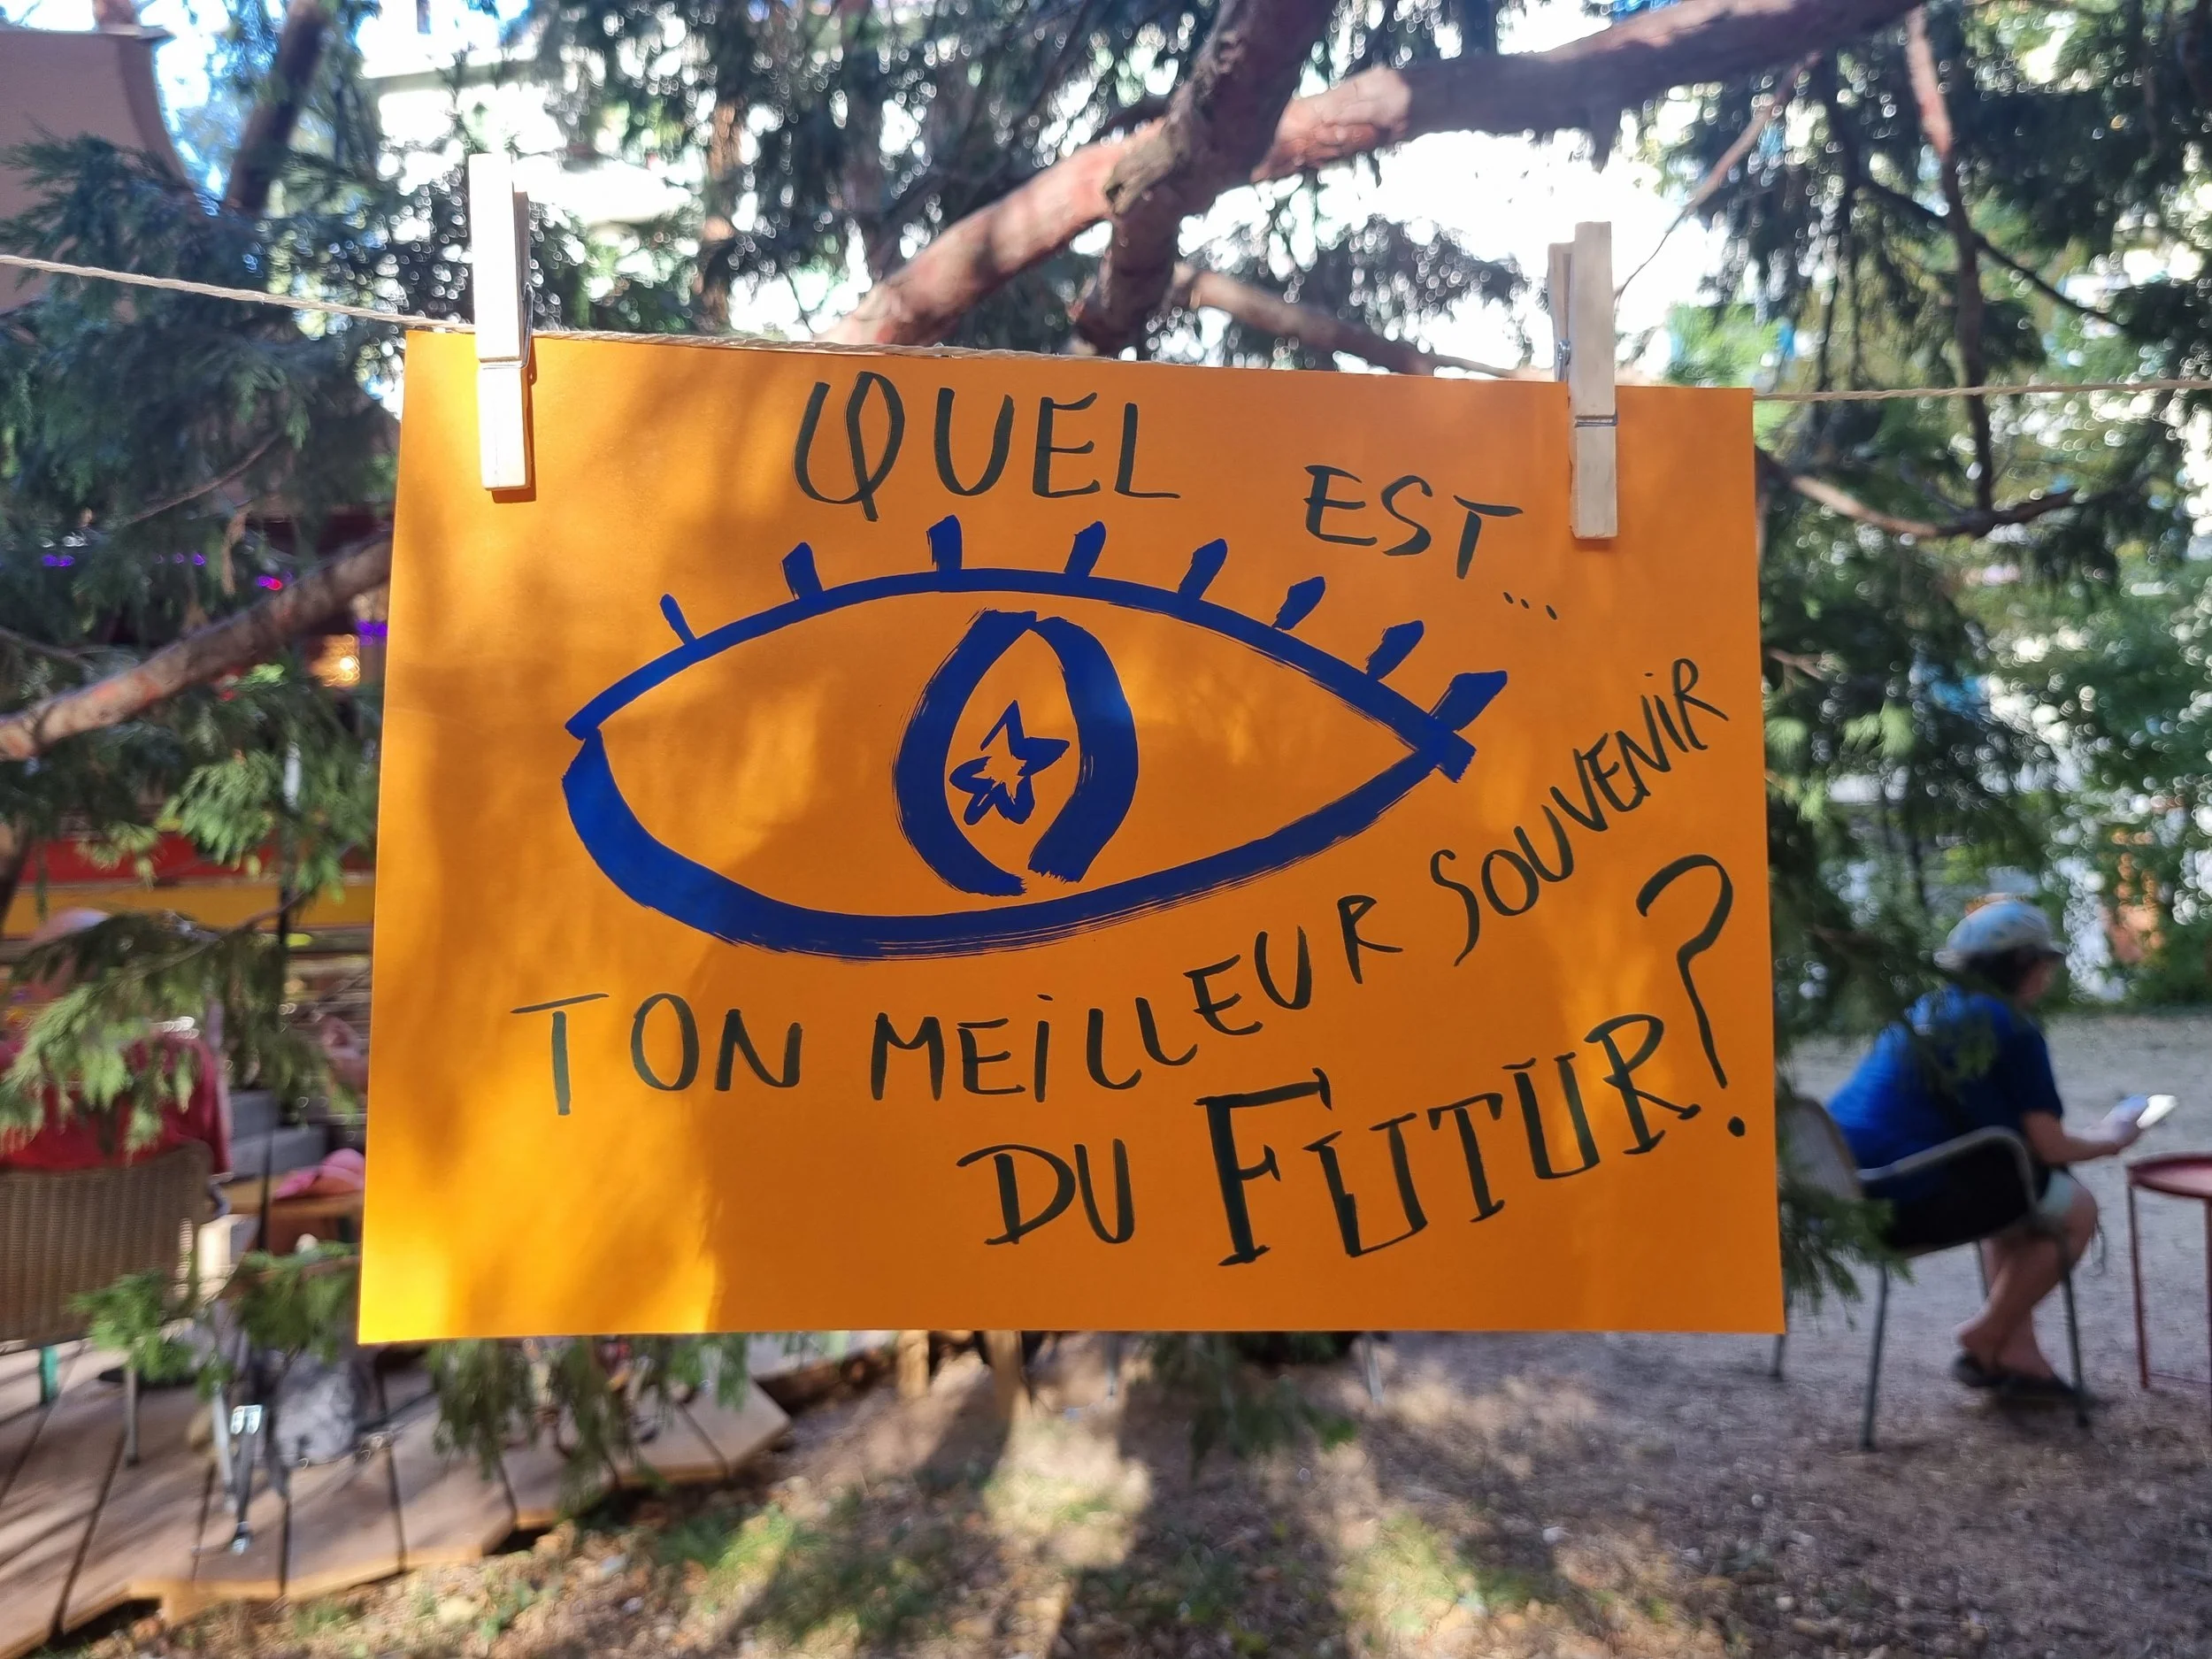 QUEL EST...
TON MEILLEUR SOUVENIR
DU FUTUR?